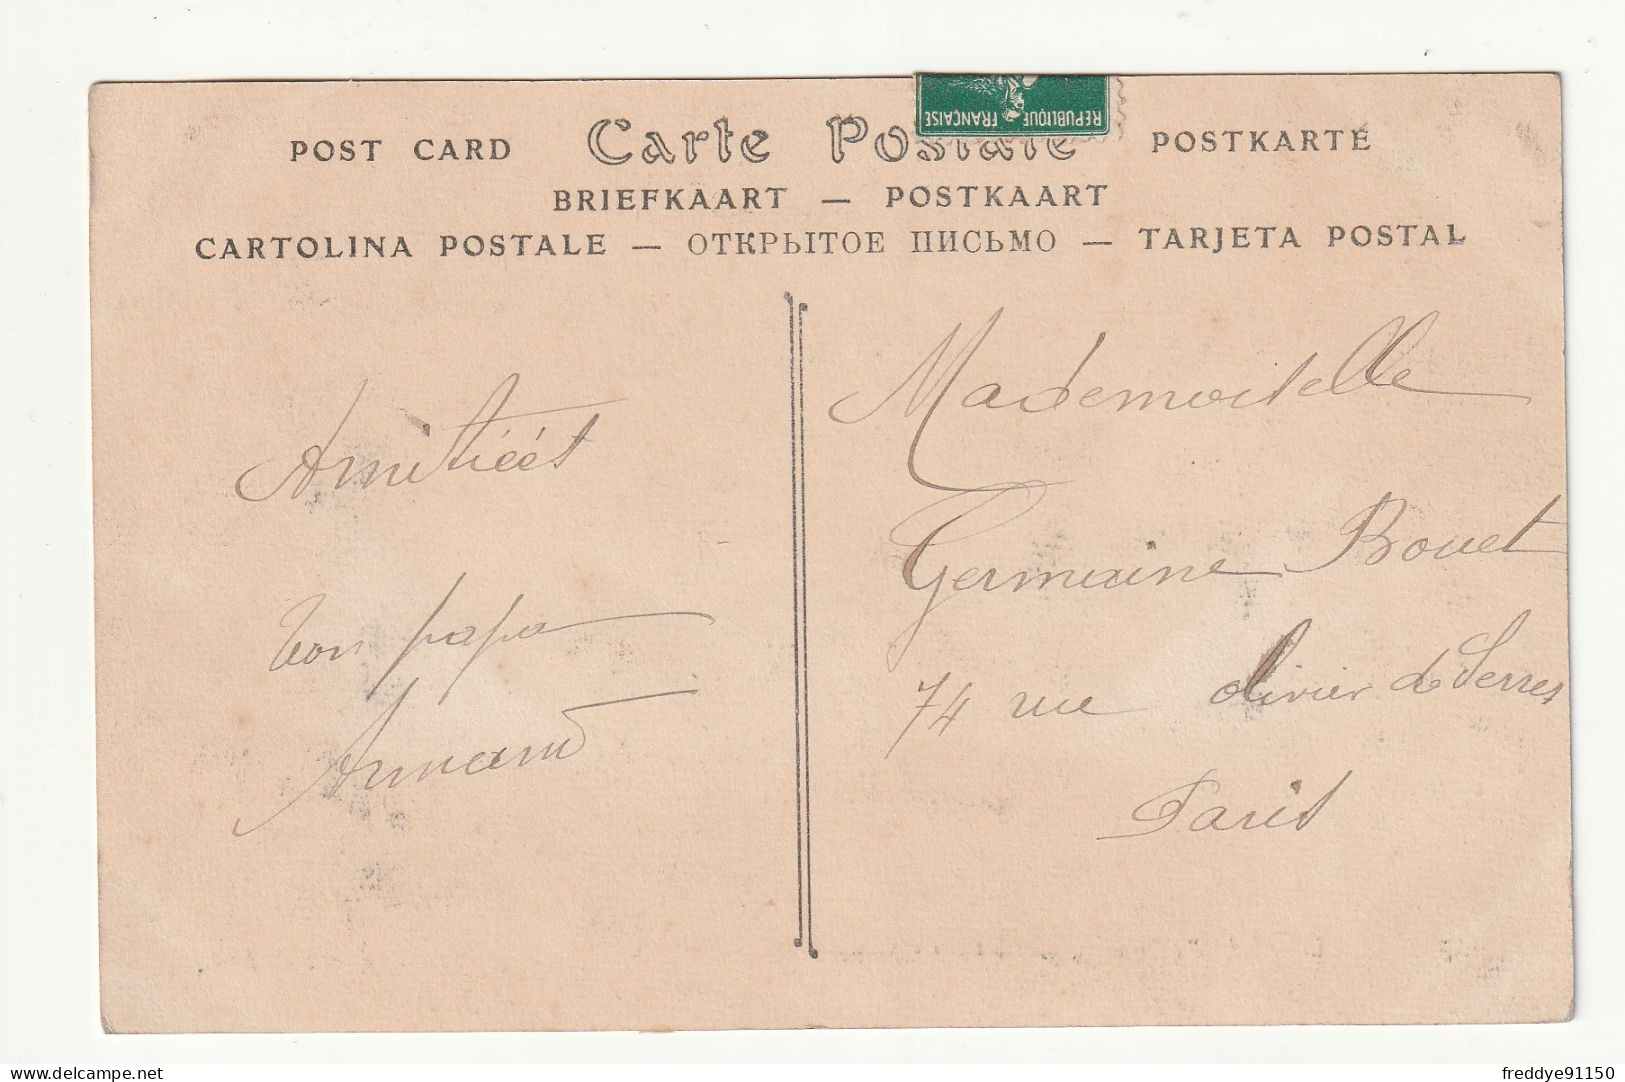 REPUBLIQUE FRANÇAISE
POST CARD Carte Postale POSTKARTE
BRIEFKAART — POSTKAART
CARTOLINA POSTALE — ОТКРЫТОЕ ПИСЬМО — TARJETA POSTAL
Amitiéés
ton papa
Armand
Mademoiselle
Germaine Bouet
74 rue Olivier de Serres
Paris
www.delcampe.net
freddye91150